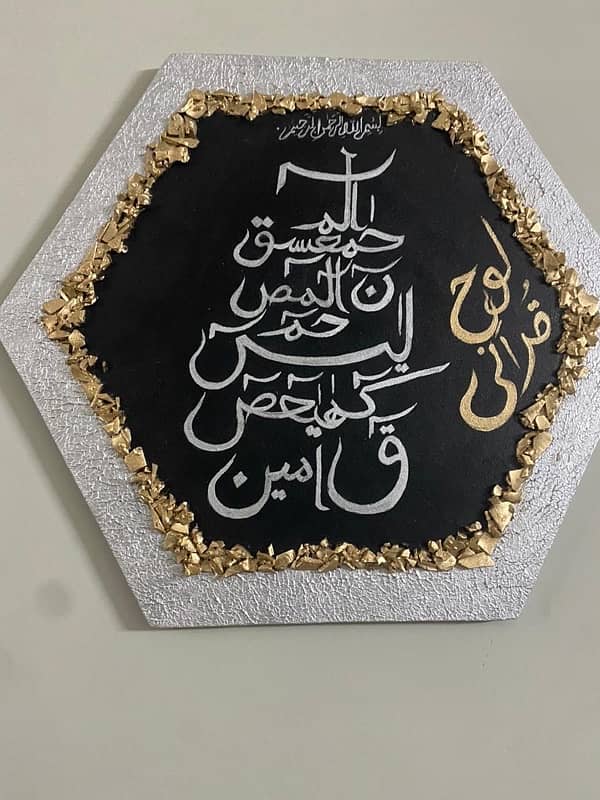 بسم الله الرحمن الرحيم
الم
حمعسق
ن المص
حم
يس
كهيعص
ق امين
لوح
قرانی